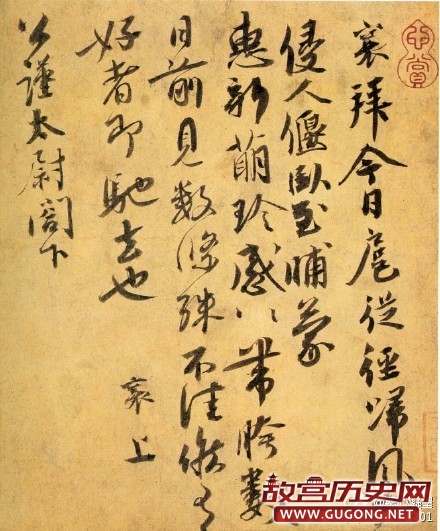 襄拜今日扈從徑歸風
侵人偃臥至晡蒙
惠新萌珍感〻帶胯數
日前見數條殊不佳候有
好者即馳去也
襄上
公謹太尉閣下
故宫历史网
WWW.GUGONG.NET
01